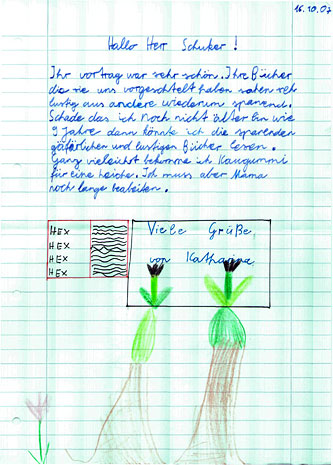 16.10.07
Hallo Herr Schuker !
Ihr vortrag war sehr schön. Ihre Bücher
die sie uns vorgeschtelt haben sahen sehr
lustig aus andere wiederum spanend.
Schade das ich noch nicht älter bin wie
9 Jahre dann könnte ich die spanenden
gefärlichen und lustigen Bücher lesen.
Ganz vieleicht bekomme ich Kaugummi
für eine Leiche. Ich muss aber Mama
noch lange bearbeiten.
HEX
HEX
HEX
HEX
Viele Grüße
von Katharina